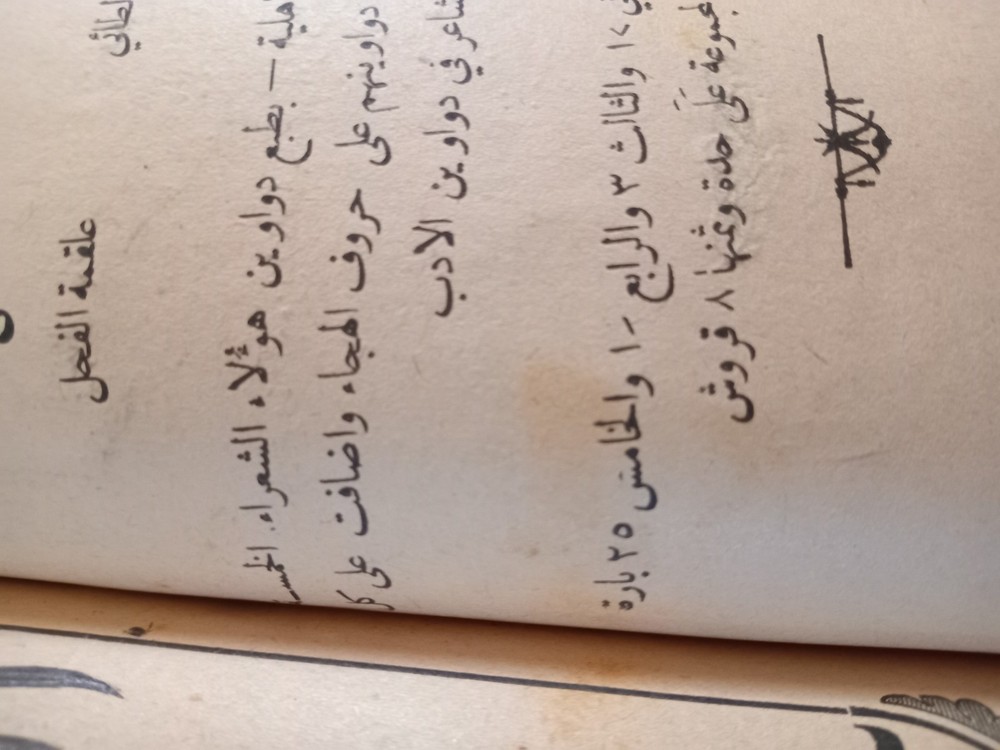 علقمة الفحل
بطبع دواوين هؤلاء الشعراء. الخمسـ
دواوينهم على حروف الهجاء واضافت على كل
في دواوين الادب
والثالث ٣ والرابع ١٠ والخامس ٢٥ بارة
على حدة وثمنها ٨ قروش